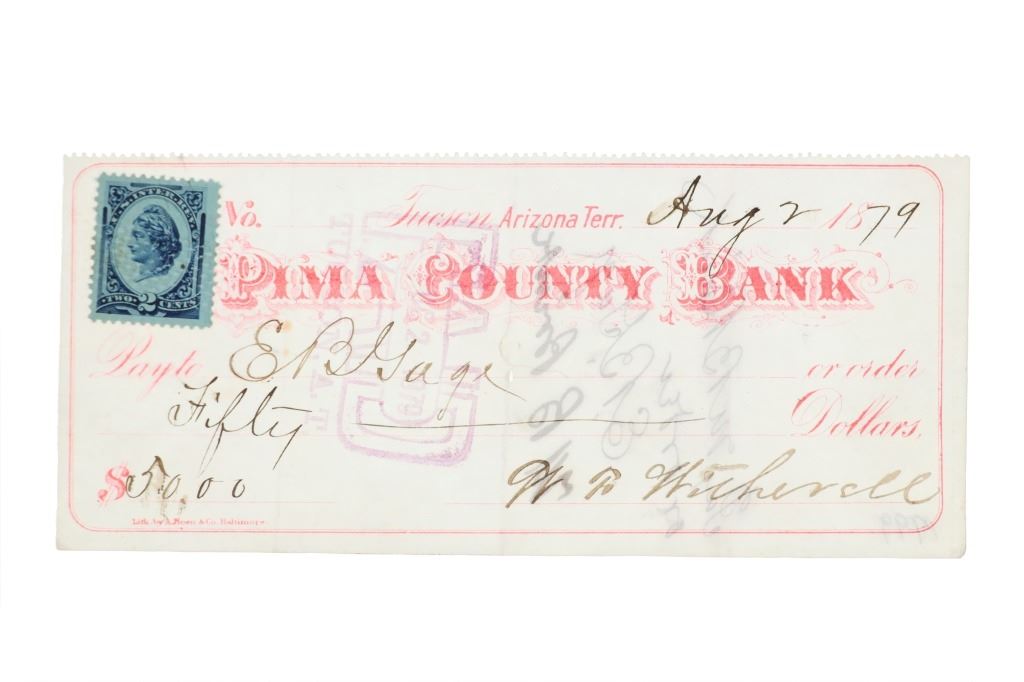 U.S. INTER. REV.
TWO 2 CENTS
No. Tucson, Arizona Terr. Aug 2 1879
PIMA COUNTY BANK
Pay to E B Gage or order
Fifty Dollars,
$ 50 00 W F Witherell
Lith. by A. Hoen & Co. Baltimore.